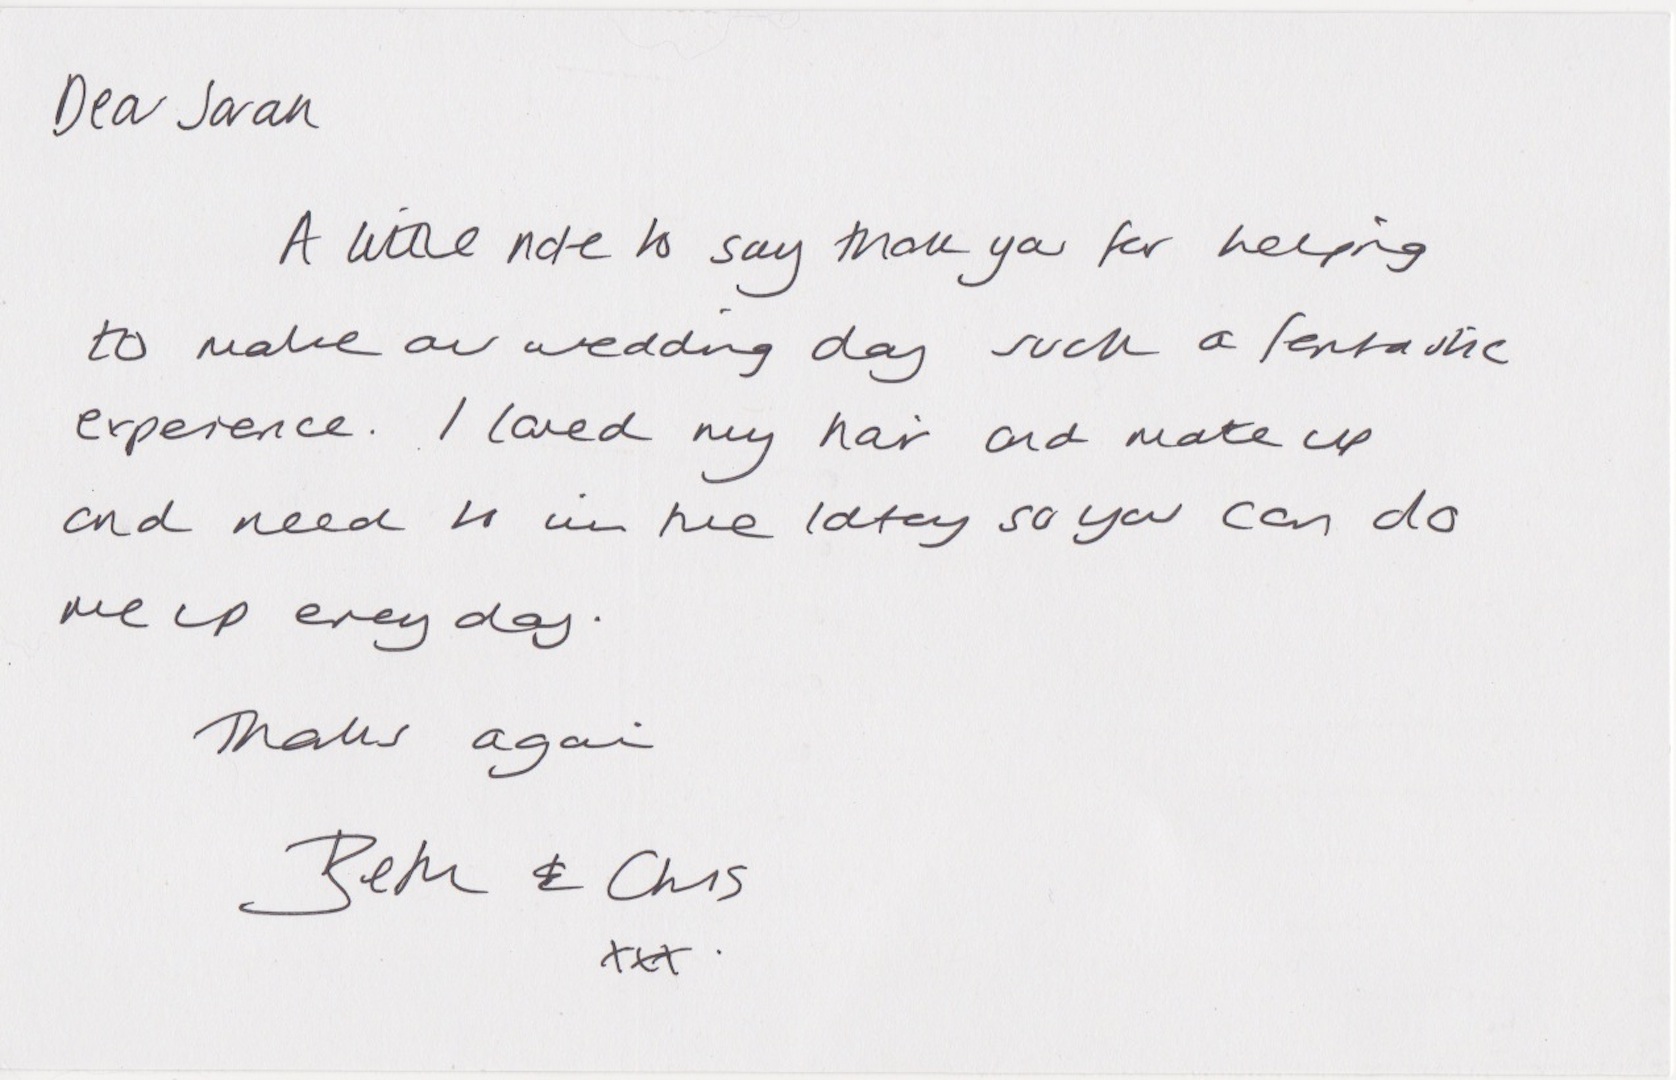 Dear Sarah
A little note to say thank you for helping
to make our wedding day such a fantastic
experience. I loved my hair and make up
and need to win the lottery so you can do
me up every day.
Thanks again
Beth & Chris
xxx.